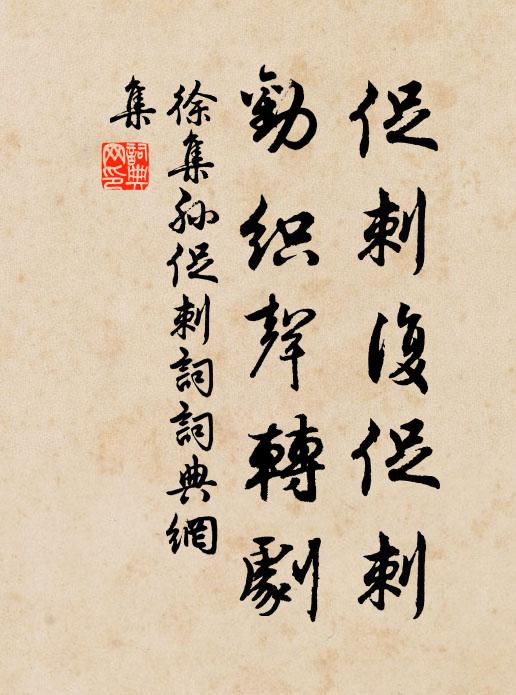 促刺復促刺
勸織聲轉劇
徐集孫促刺詞詞典網
集
詞典
网印